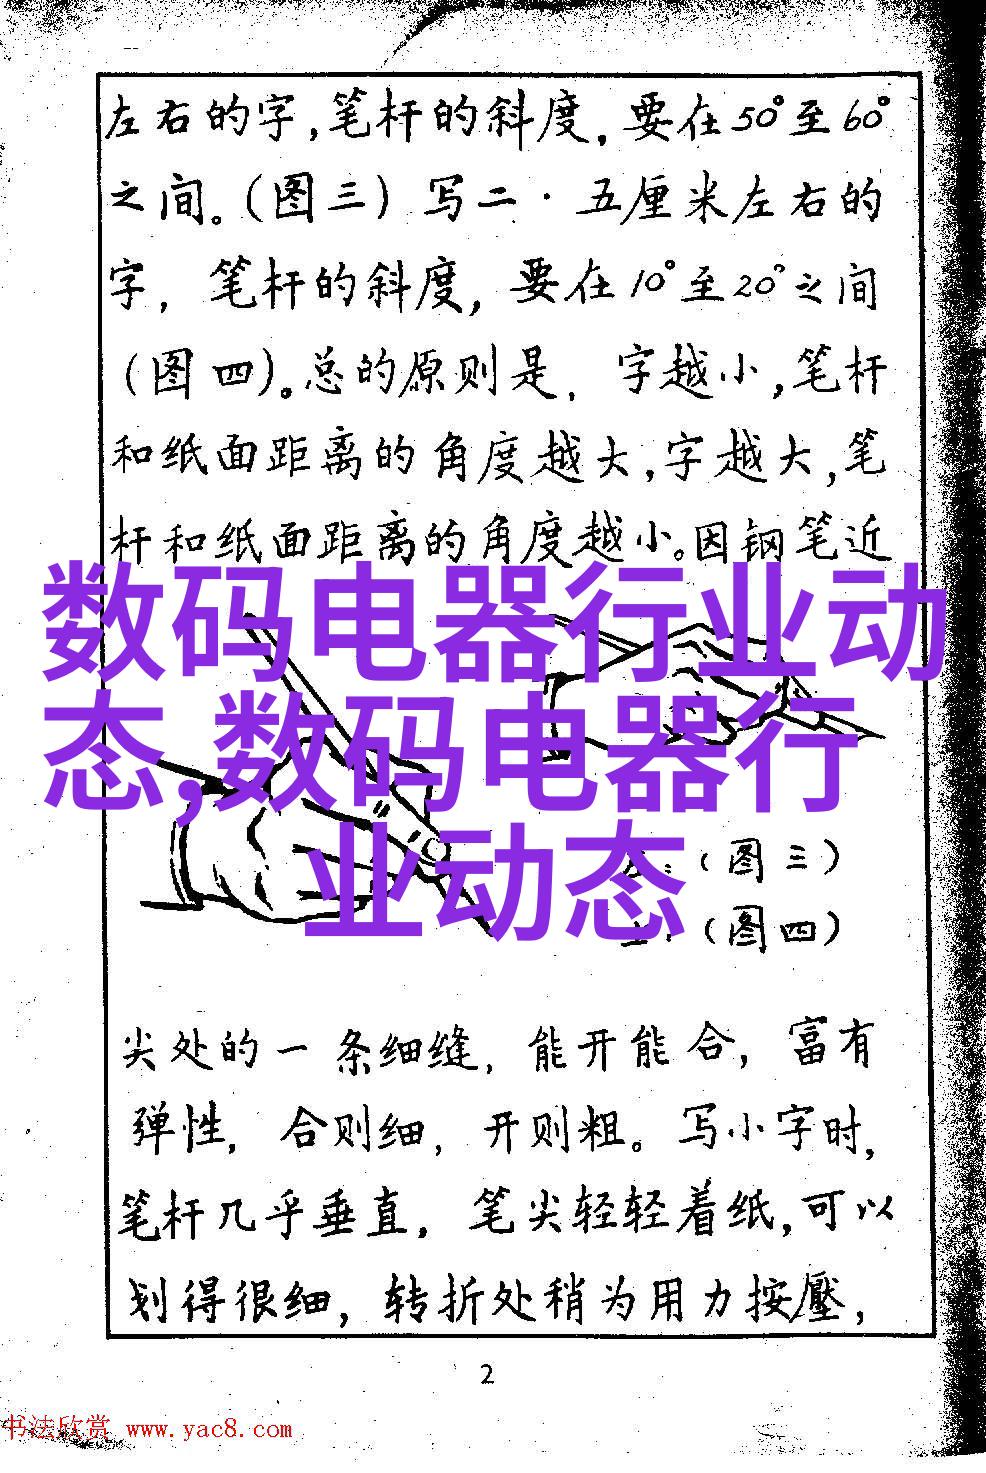 左右的字,笔杆的斜度,要在50°至60°
之间。(图三)写二·五厘米左右的
字,笔杆的斜度,要在10°至20°之间
(图四)。总的原则是,字越小,笔杆
和纸面距离的角度越大,字越大,笔
杆和纸面距离的角度越小。因钢笔近
数码电器行业动
态,数码电器行
业动态
(图三)
(图四)
尖处的一条细缝,能开能合,富有
弹性,合则细,开则粗。写小字时,
笔杆几乎垂直,笔尖轻轻着纸,可以
划得很细,转折处稍为用力按壓,
2
书法欣赏 www.yac8.com